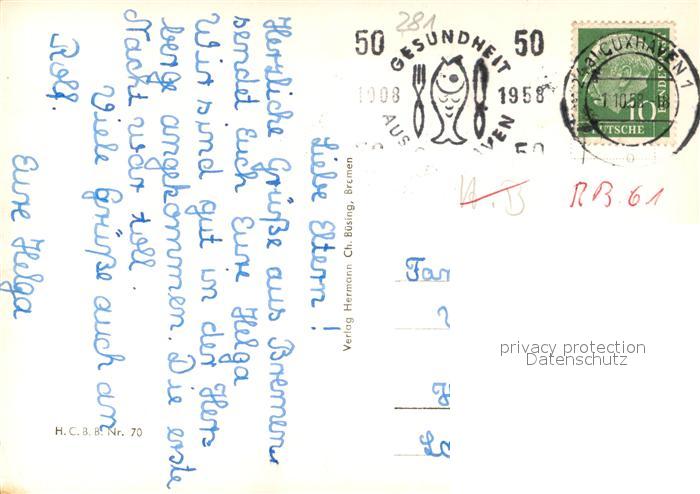 Liebe Eltern!
Herzliche Grüße aus Bremen,
sendet Euch Eure Helga
Wir sind gut in der Her=
berge angekommen. Die erste
Nacht war toll.
Viele Grüße auch an
Rolf.
Eure Helga
H.C.B.B. Nr. 70
Verlag Hermann Ch. Büsing, Bremen
281
50 GESUNDHEIT 50
1908 1958
AUS
50
CUXHAVEN 1
1.10.58
10
DEUTSCHE
RB. 61
privacy protection
Datenschutz